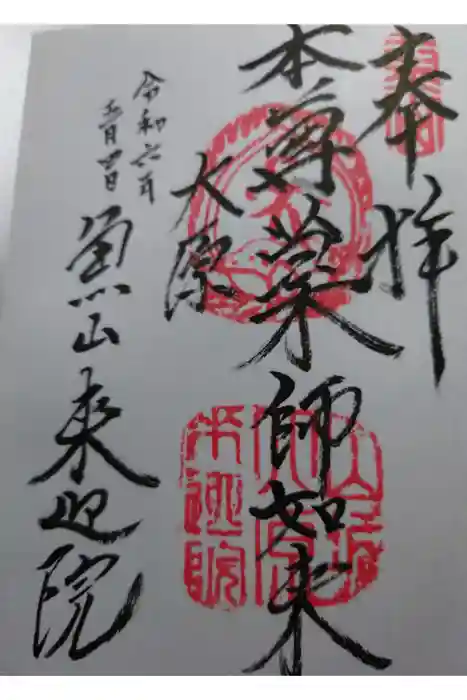 奉拝
本尊薬師如来
大原
令和六年
五月四日
魚山来迎院
山城
大原
来迎院